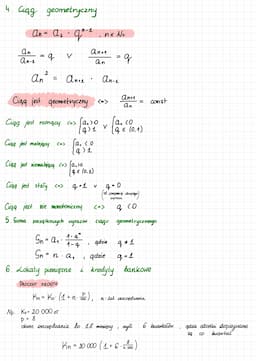 4 Ciąg geometryczny
aₙ = a₁ · qⁿ⁻¹ , n ∈ N₊
aₙ/aₙ₋₁ = q v aₙ₊₁/aₙ = q
aₙ² = aₙ₊₁ · aₙ₋₁
Ciąg jest geometryczny <=> aₙ₊₁/aₙ = const
Ciąg jest rosnący <=> {a₁>0 q>1 v {a₁<0 q ∈ (0,1)
Ciąg jest malejący <=> {a₁<0 q>1
Ciąg jest niemalejący <=> {a₁>0 q ∈ (0,1)
Ciąg jest stały <=> q=1 v q=0
Ciąg jest nie monotoniczny <=> q<0
5. Suma początkowych wyrazów ciągu geometrycznego
Sₙ = a₁ · 1-qⁿ/1-q , gdzie q ≠ 1
Sₙ = n · a₁ , gdzie q = 1
6. Lokaty pieniężne i kredyty bankowe
Procent prosty
Kₙ = K₀ (1 + n · p/100), n -
Np. K₀ = 20 000 zł
p = 8
czas oszczędzania to 18 miesięcy, czyli 6 kwartałów, gdzie odsetki dopisywane są co kwartał
Kₙ = 20 000 (1 + 6 ·